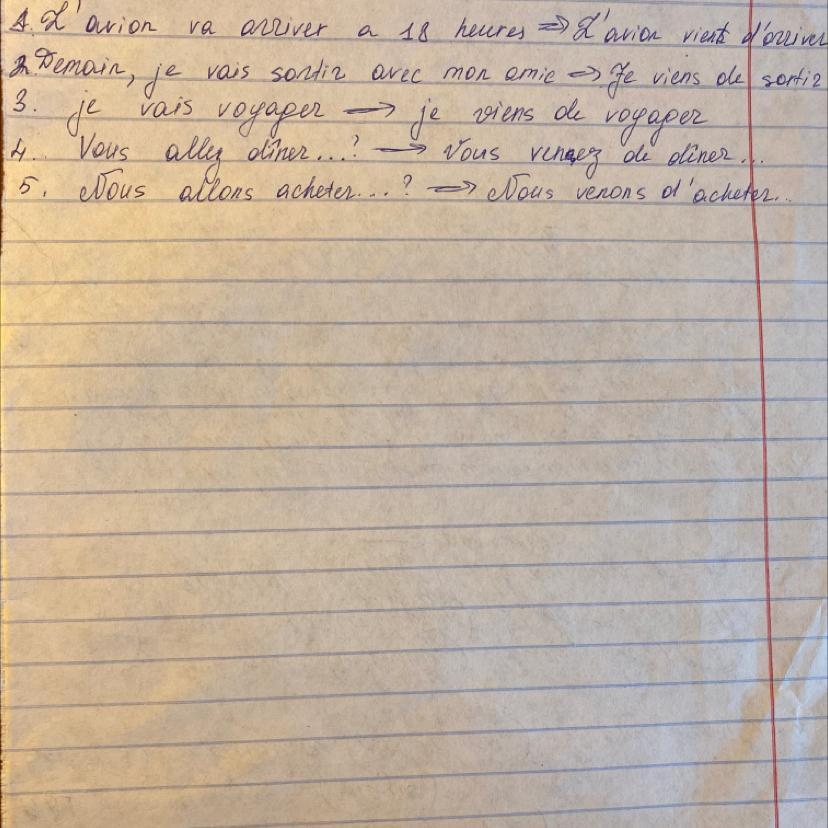 1. L'avion va arriver a 18 heures => L'avion vient d'arriver
2. Demain, je vais sortir avec mon amie => Je viens de sortir
3. je vais voyager => je viens de voyager
4. Vous allez dîner...? => Vous venez de dîner...
5. Nous allons acheter...? => Nous venons d'acheter...